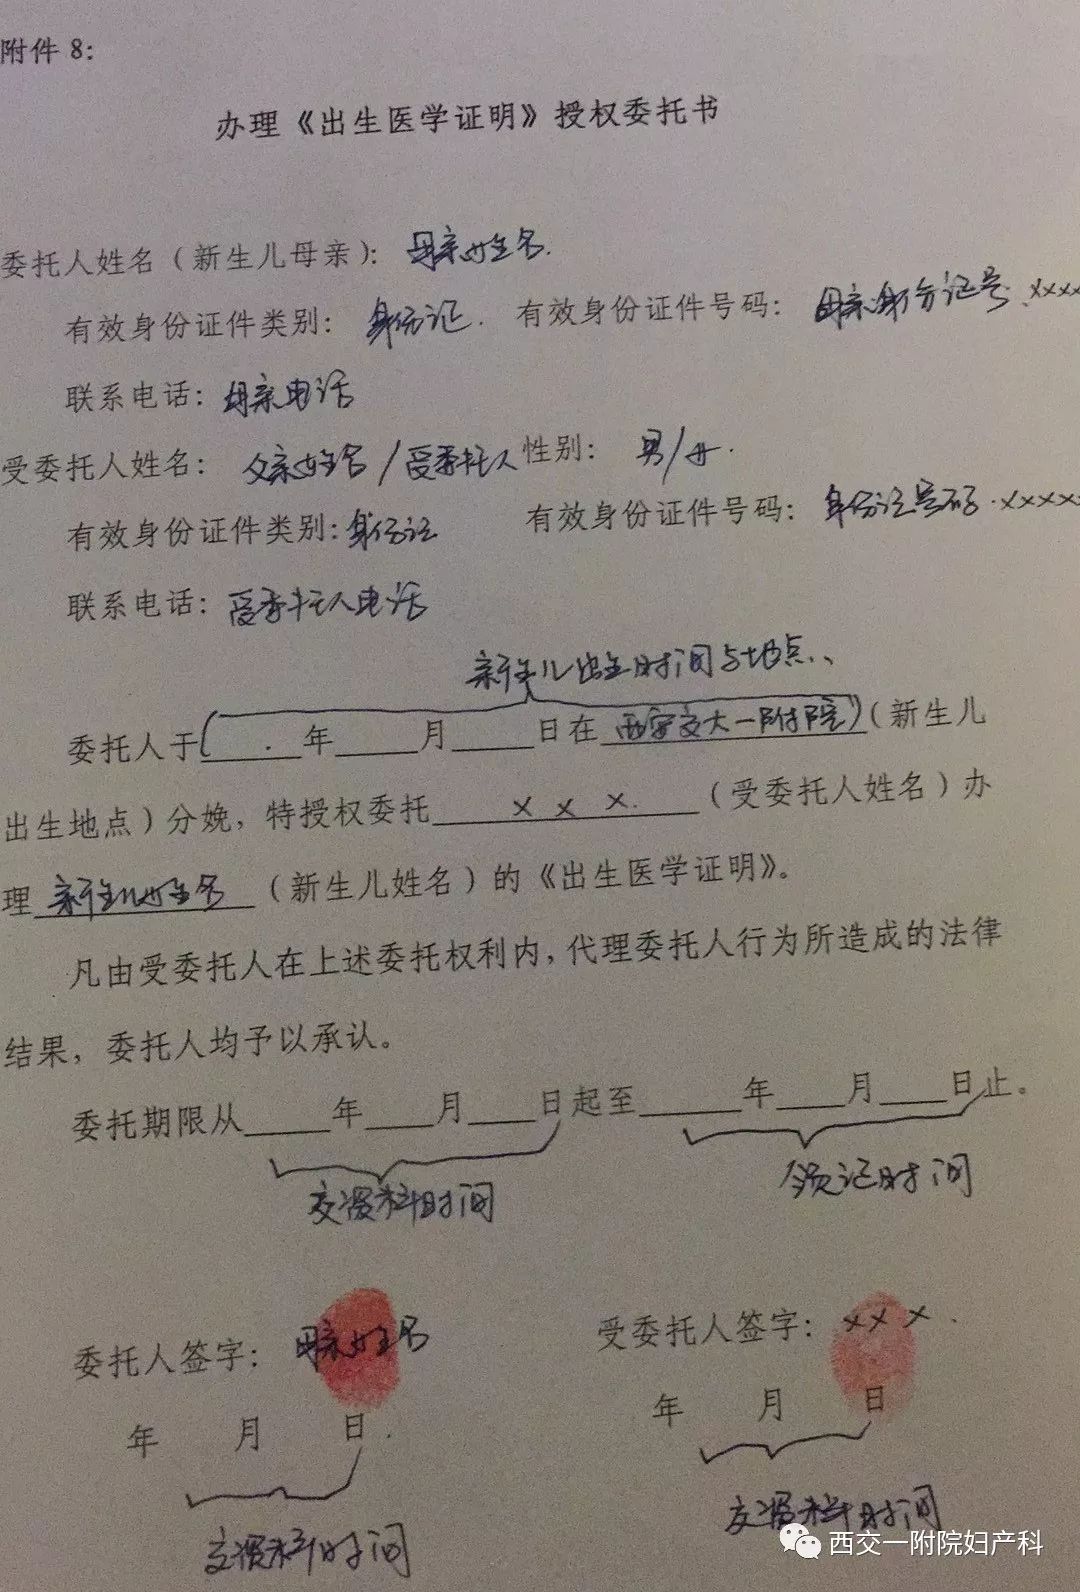 附件 8：
办理《出生医学证明》授权委托书
委托人姓名（新生儿母亲）： 母亲姓名.
有效身份证件类别： 身份证. 有效身份证件号码： 母亲身份证号.xxxx
联系电话： 母亲电话
受委托人姓名： 父亲姓名/受委托人 性别： 男/女.
有效身份证件类别：身份证 有效身份证件号码： 身份证号码.xxxxx
联系电话：受委托人电话
新生儿出生时间与地点..
委托人于( . 年 月 日在 西安交大一附院)（新生儿
出生地点）分娩，特授权委托 x x x. （受委托人姓名）办
理 新生儿姓名 （新生儿姓名）的《出生医学证明》。
凡由受委托人在上述委托权利内，代理委托人行为所造成的法律
结果，委托人均予以承认。
委托期限从 年 月 日起至 年 月 日止。
交资料时间 领证时间
委托人签字： 母亲姓名 受委托人签字： xxx.
年 月 日. 年 月 日
交资料时间 交资料时间
西交一附院妇产科